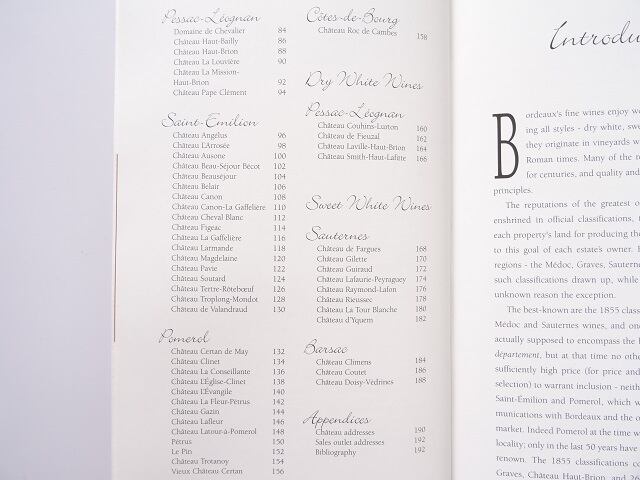 Pessac-Léognan
Domaine de Chevalier 84
Château Haut-Bailly 86
Château Haut-Brion 88
Château La Louvière 90
Château La Mission-
Haut-Brion 92
Château Pape Clément 94
Saint-Emilion
Château Angelus 96
Château L'Arrosée 98
Château Ausone 100
Château Beau-Séjour Bécot 102
Château Beauséjour 104
Château Belair 106
Château Canon 108
Château Canon-La Gaffelière 110
Château Cheval Blanc 112
Château Figeac 114
Château La Gaffelière 116
Château Larmande 118
Château Magdelaine 120
Château Pavie 122
Château Soutard 124
Château Tertre-Rôtebœuf 126
Château Troplong-Mondot 128
Château de Valandraud 130
Pomerol
Château Certan de May 132
Château Clinet 134
Château La Conseillante 136
Château L'Église-Clinet 138
Château L'Évangile 140
Château La Fleur-Pétrus 142
Château Gazin 144
Château Lafleur 146
Château Latour-à-Pomerol 148
Pétrus 150
Le Pin 152
Château Trotanoy 154
Vieux Château Certan 156
Côtes-de-Bourg
Château Roc de Cambes 158
Dry White Wines
Pessac-Léognan
Château Couhins-Lurton 160
Château de Fieuzal 162
Château Laville-Haut-Brion 164
Château Smith-Haut-Lafitte 166
Sweet White Wines
Sauternes
Château de Fargues 168
Château Gilette 170
Château Guiraud 172
Château Lafaurie-Peyraguey 174
Château Raymond-Lafon 176
Château Rieussec 178
Château La Tour Blanche 180
Château d'Yquem 182
Barsac
Château Climens 184
Château Coutet 186
Château Doisy-Védrines 188
Appendices
Château addresses 190
Sales outlet addresses 192
Bibliography 192
Introdu
Bordeaux's fine wines enjoy
ing all styles - dry white,
they originate in vineyards
Roman times. Many of the
for centuries, and quality and
principles.
The reputations of the greatest
enshrined in official classifications,
each property's land for producing the
to this goal of each estate's owner.
regions - the Médoc, Graves,
such classifications drawn up, while
unknown reason the exception.
The best-known are the 1855
Médoc and Sauternes wines, and
actually supposed to encompass the
département, but at that time no
sufficiently high price (for price and
selection) to warrant inclusion -
Saint-Émilion and Pomerol, which
munications with Bordeaux and the
market. Indeed Pomerol at the time
locality; only in the last 50 years have
renown. The 1855 classifications
Graves, Château Haut-Brion, and